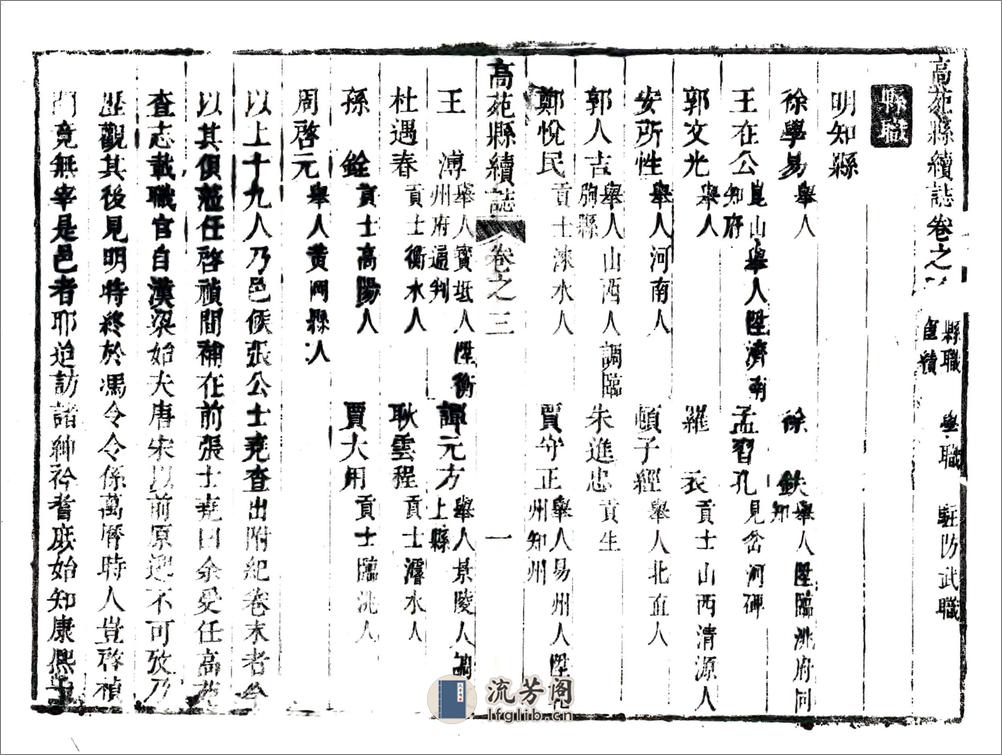 高苑縣續誌卷之
縣職 學職 駐防武職
宦績
縣職
明知縣
徐學易 舉人 徐鈇 舉人陞臨洮府同知
王在公 崑山舉人陞濟南知府 孟習孔 見岔河碑
郭文光 舉人 羅衣 貢士山西清源人
安所性 舉人河南人 頓子經 舉人北直人
郭人吉 舉人山西人調臨朐縣 朱進忠 貢生
鄭悅民 貢士淶水人 賈守正 舉人易州人陞 州知州
高苑縣續誌 卷之三 一
王溥 舉人寶坻人陞衡州府通判 譚元方 舉人景陵人調上縣
杜遇春 貢士衡水人 耿雲程 貢士濬水人
孫銓 貢士高陽人 賈大用 貢士臨洮人
周啓元 舉人黃岡縣人
以上十九人乃邑侯張公士堯查出附紀卷末者今
以其俱蒞任啓禎間補在前張士堯曰余受任高苑
查志載職官自漢梁始夫唐宋以前原邈不可攷乃
歷觀其後見明時終於馮令令係萬曆時人豈啓禎
間竟無宰是邑者耶迨訪諸紳衿耆庶始知康熙十
流芳阁
lfglib.cn